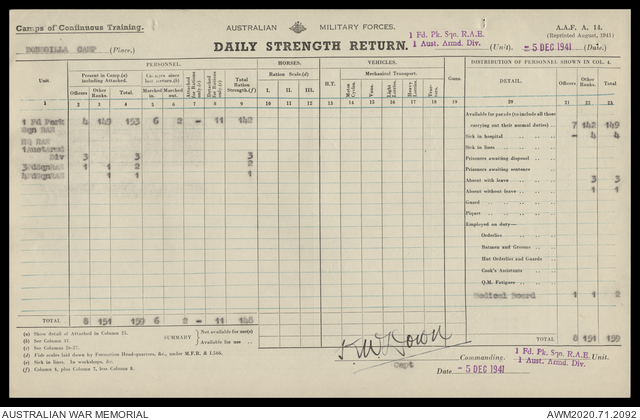 Camps of Continuous Training.
AUSTRALIAN MILITARY FORCES.
A.A.F. A. 14.
(Reprinted August, 1941)
CAMP (Place.)
DAILY STRENGTH RETURN.
1 Fd. Pk. Sqn. R.A.E.
1 Aust. Armd. Div.
(Unit).
-5 DEC 1941 (Date.)
PERSONNEL.
HORSES.
VEHICLES.
DISTRIBUTION OF PERSONNEL SHOWN IN COL. 4.
Unit.
Present in Camp(a) including Attached.
Marched in.
Marched out.
Attached for Rations only(c)
Detached for Rations only(c)
Total Ration Strength(f)
Ration Scale(d)
H.T.
Mechanical Transport.
Guns.
DETAIL.
Officers
Other Ranks.
Total.
I. II. III.
Motor Cycles.
Vans.
Light Lorries.
Heavy Lorries.
Officers
Other Ranks.
Total.
1 2 3 4 5 6 7 8 9 10 11 12 13 14 15 16 17 18 19 20 21 22 23
1 Fd Park 4 149 153 6 2 - 11 142
Sqn RAE
HQ RAE
Div 3 3 3
1 1 2 2
1 1 1
Available for parade (to include all those carrying out their normal duties) 7 142 149
Sick in hospital - 4 4
Sick in lines
Prisoners awaiting disposal
Prisoners awaiting sentence
Absent with leave 3 3
Absent without leave 1 1
Guard
Piquet
Employed on duty—
Orderlies
Batmen and Grooms
Hut Orderlies and Guards
Cook's Assistants
Q.M. Fatigues
Medical Board 1 1 2
TOTAL 8 151 159 6 2 - 11 148
TOTAL 8 151 159
(a) Show detail of Attached in Column 23.
(b) See Column 11.
(c) See Columns 26-27.
(d) Fish scales laid down by Formation Head-quarters, &c., under M.F.R. & I.
(e) Sick in Lines. In workshops, &c.
(f) Column 4, plus Column 7, less Column 8.
SUMMARY
Not available for use(e)
Available for use
Capt
Commanding.
1 Fd. Pk. Sqn. R.A.E.
1 Aust. Armd. Div.
Unit.
Date -5 DEC 1941
AUSTRALIAN WAR MEMORIAL
AWM2020.71.2092